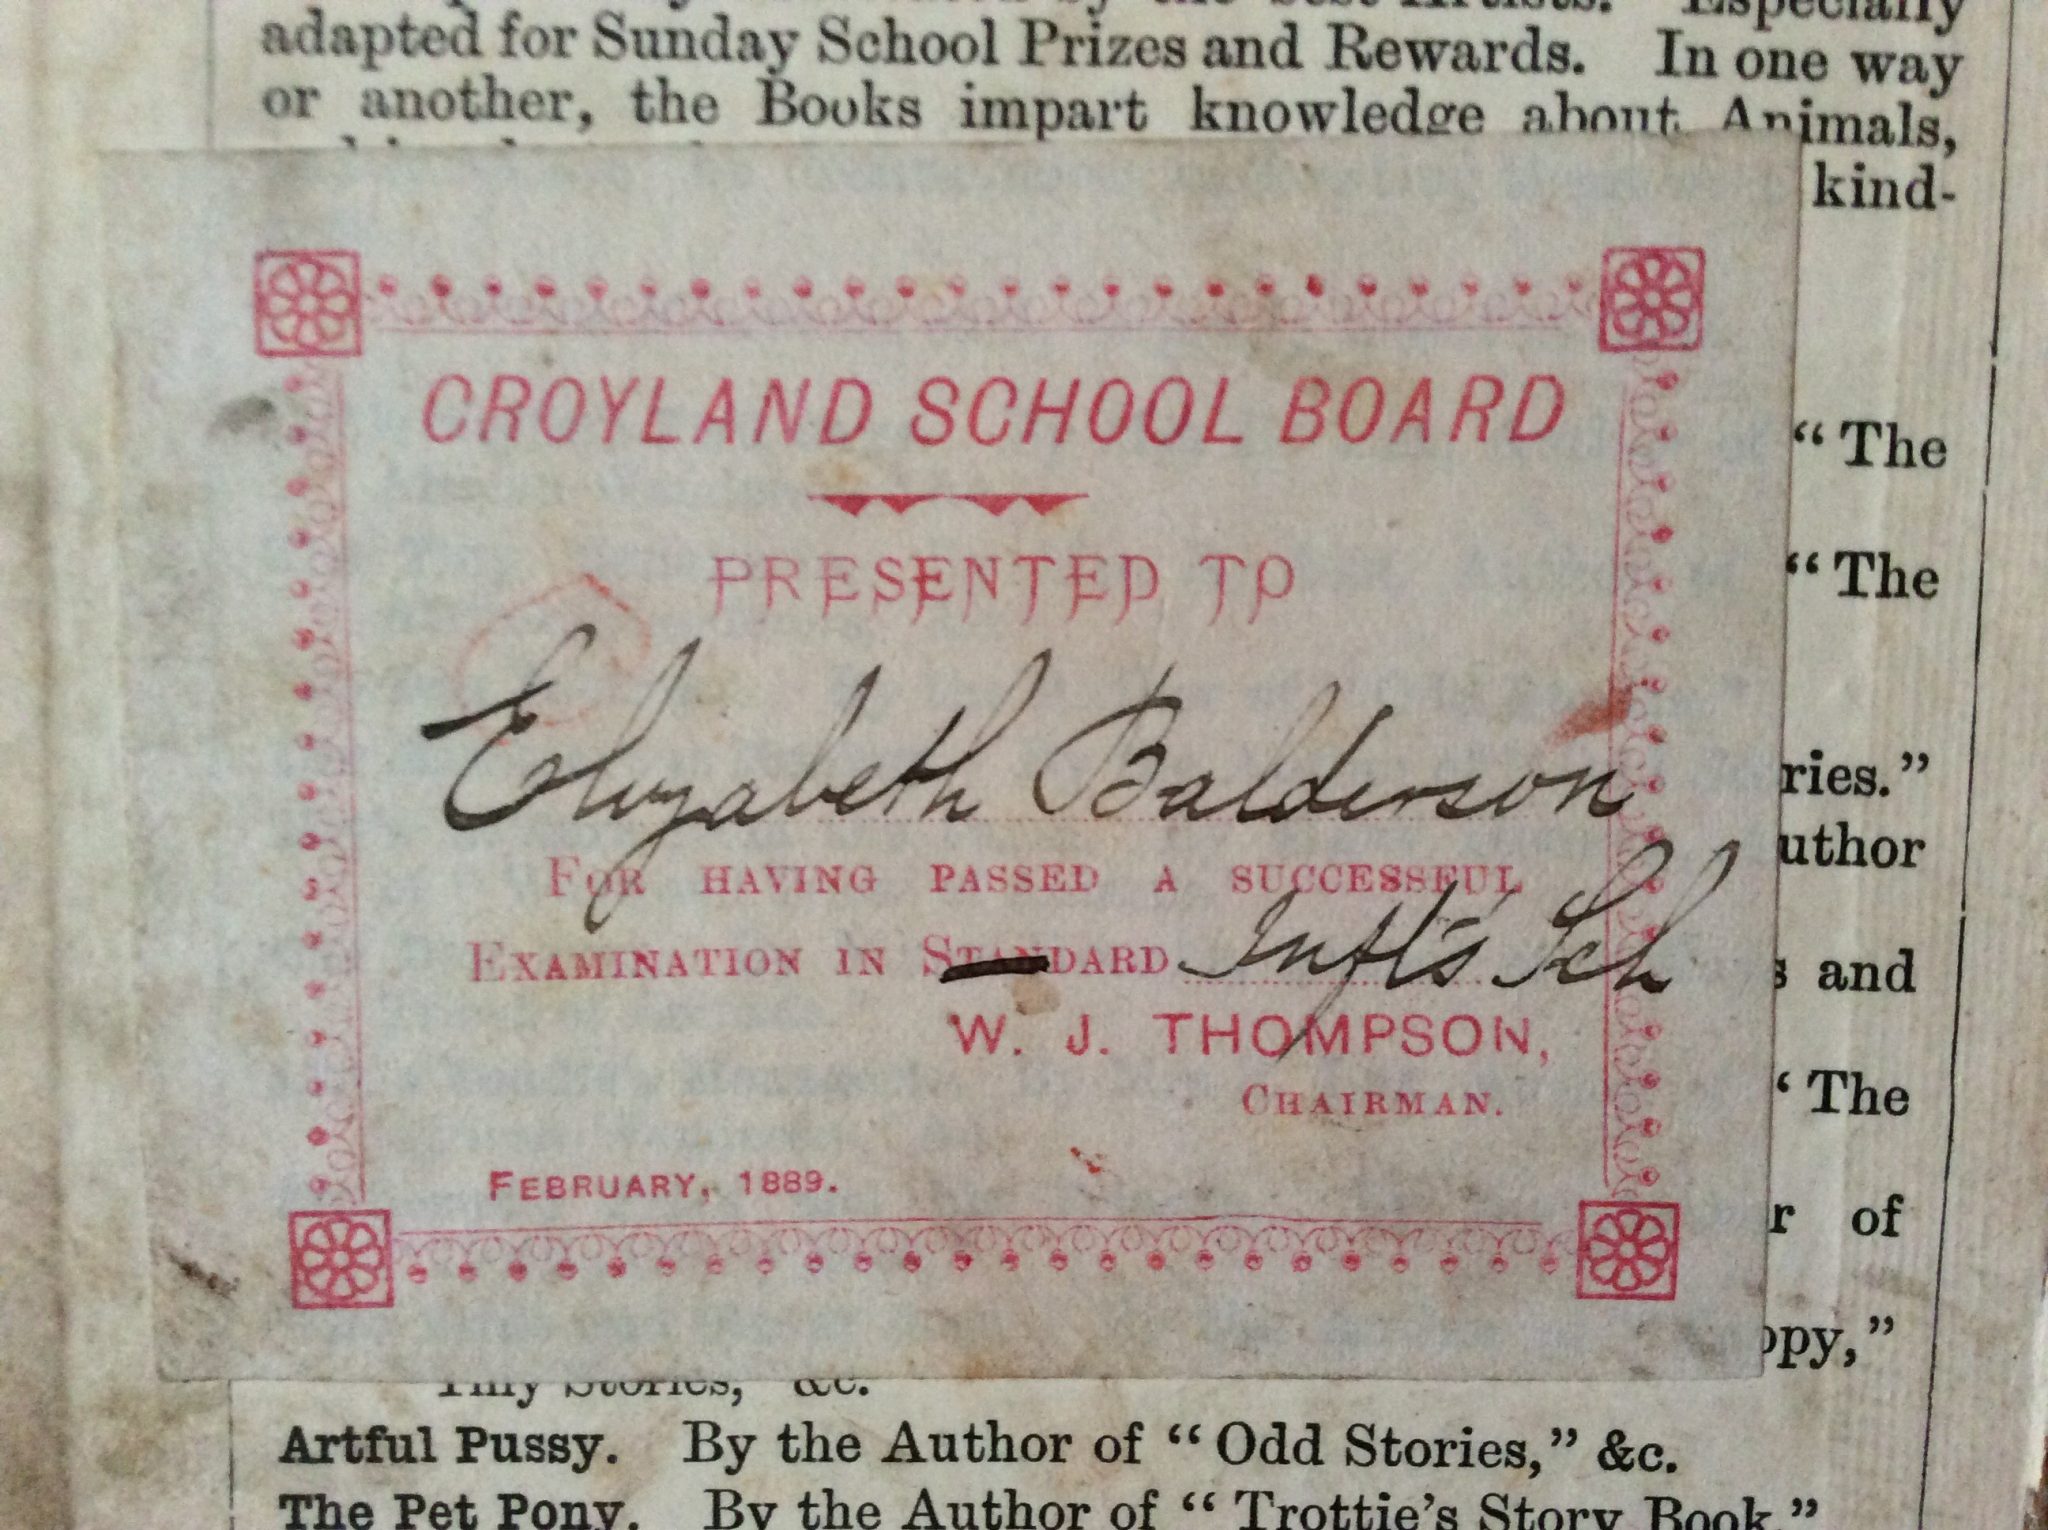 adapted for Sunday School Prizes and Rewards. In one way
or another, the Books impart knowledge about Animals,
kind-
CROYLAND SCHOOL BOARD
"The
PRESENTED TO
"The
Elizabeth Balderson
ries."
FOR HAVING PASSED A SUCCESSFUL
uthor
EXAMINATION IN STANDARD Inft's Sch
s and
W. J. THOMPSON,
CHAIRMAN.
'The
FEBRUARY, 1889.
r of
ppy,"
Tiny Stories, &c.
Artful Pussy. By the Author of "Odd Stories," &c.
The Pet Pony. By the Author of "Trottie's Story Book."